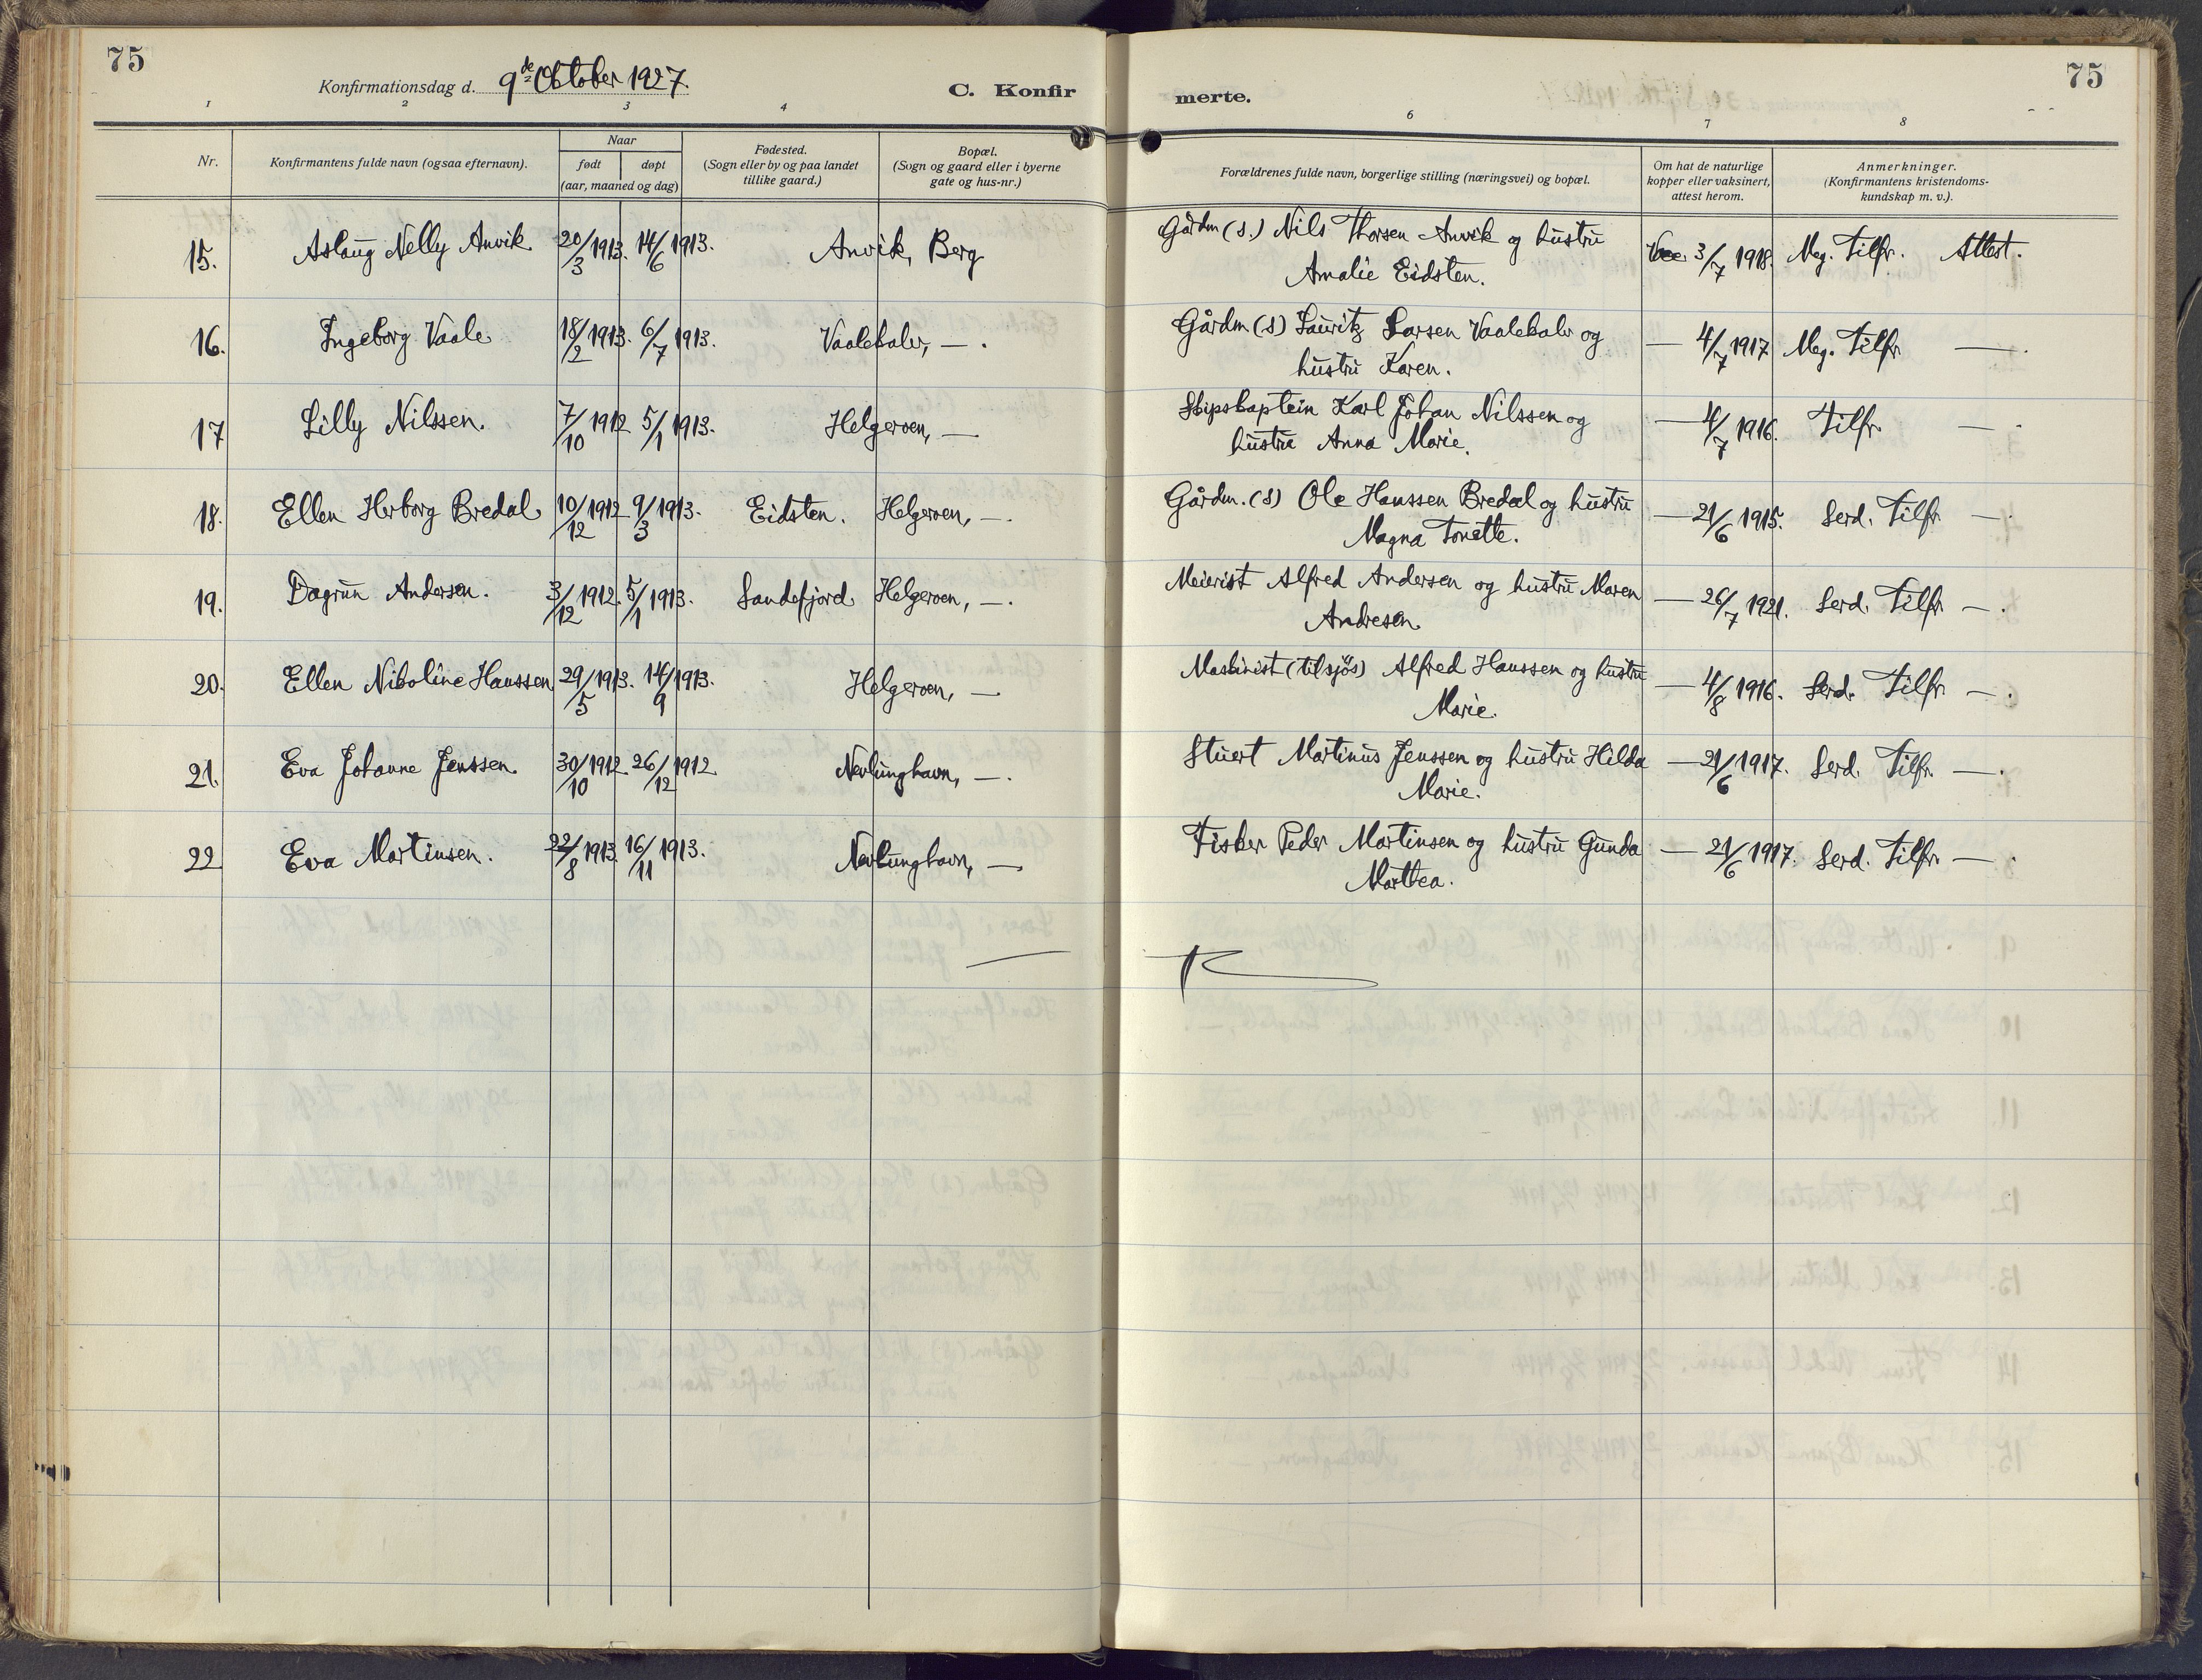 75
Konfirmationsdag d. 9de Oktober 1927.
C. Konfir
merte.
75
1 2 3 4 6 7 8
Nr.
Konfirmantens fulde navn (ogsaa efternavn).
Naar
født døpt
(aar, maaned og dag)
Fødested.
(Sogn eller by og paa landet
tillike gaard.)
Bopæl.
(Sogn og gaard eller i byerne
gate og hus-nr.)
Forældrenes fulde navn, borgerlige stilling (næringsvei) og bopæl.
Om hat de naturlige
kopper eller vaksinert,
attest herom.
Anmerkninger.
(Konfirmantens kristendoms-
kundskap m. v.).
15. Aslaug Nelly Anvik. 20/3 1913. 14/6 1913. Anvik, Berg Gårdm (s.) Nils Thorsen Anvik og hustru Vac. 3/7 1918. Meg. Tilfr. Attest.
Amalie Eidsten.
16. Ingeborg Vaale 18/2 1913. 6/7 1913. Vaalekalv, — . Gårdm (s) Lauritz Larsen Vaalekalv og — 4/7 1917 Meg. Tilfr — .
hustru Karen.
17 Lilly Nilssen. 7/10 1912 5/1 1913. Helgeroen, — Skipskaptein Karl Johan Nilssen og — 4/7 1916. Tilfr. — .
hustru Anna Marie.
18. Ellen Herborg Bredal 10/12 1912 9/3 1913. Eidsten. Helgeroen, — . Gårdm. (s) Ole Hanssen Bredal og hustru — 21/6 1915. Serd. Tilfr. — .
Magna Tonette.
19. Dagrun Andersen. 3/12 1912. 5/1 1913. Sandefjord Helgeroen, — . Meierist Alfred Andersen og hustru Maren — 26/7 1921. Serd. Tilfr — .
Andresen
20. Ellen Nikoline Hanssen 29/5 1913. 14/9 1913. Helgeroen, — Maskinist (tilsjös) Alfred Hanssen og hustru — 4/8 1916. Serd. Tilfr. — .
Marie.
21. Eva Johanne Jenssen. 30/10 1912. 26/12 1912. Nevlunghavn, — . Stuert Martinus Jenssen og hustru Hilda — 21/6 1917. Serd. Tilfr. — .
Marie.
22 Eva Martinsen. 22/8 1913. 16/11 1913. Nevlunghavn, — Fisker Peder Martinsen og hustru Gunda — 21/6 1917. Serd. Tilfr. — .
Marthea.